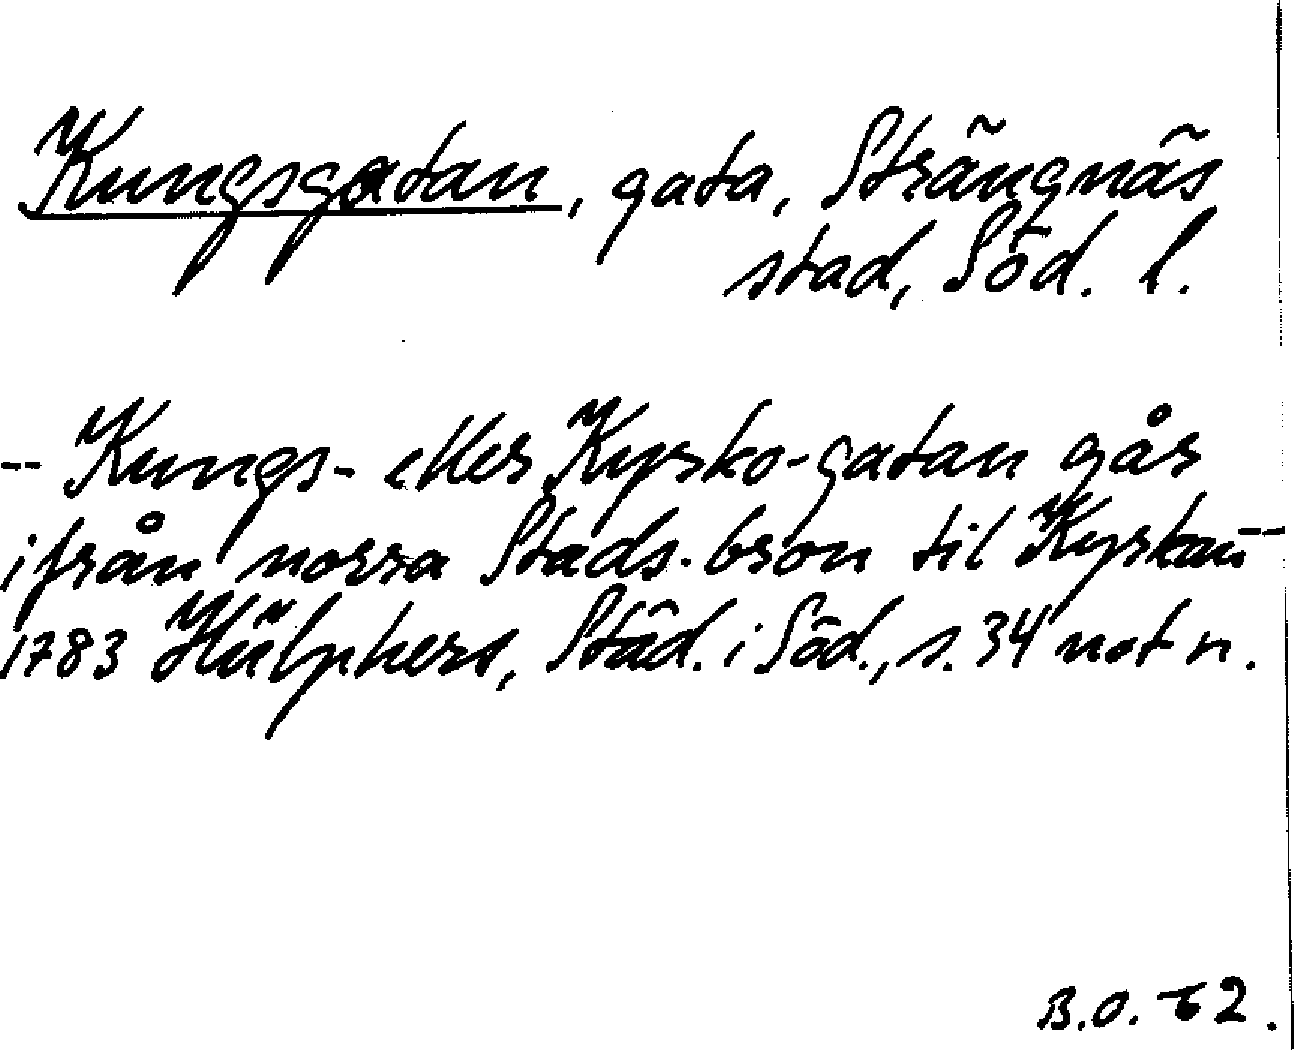 Kungsgatan, gata, Strängnäs
stad, Söd. l.
-- Kungs- eller Kyrko-gatan går
ifrån norra Stads-bron til Kyrkan --
1783 Hülphers, Städ. i Söd., s. 34 not n.
B.O. -62.